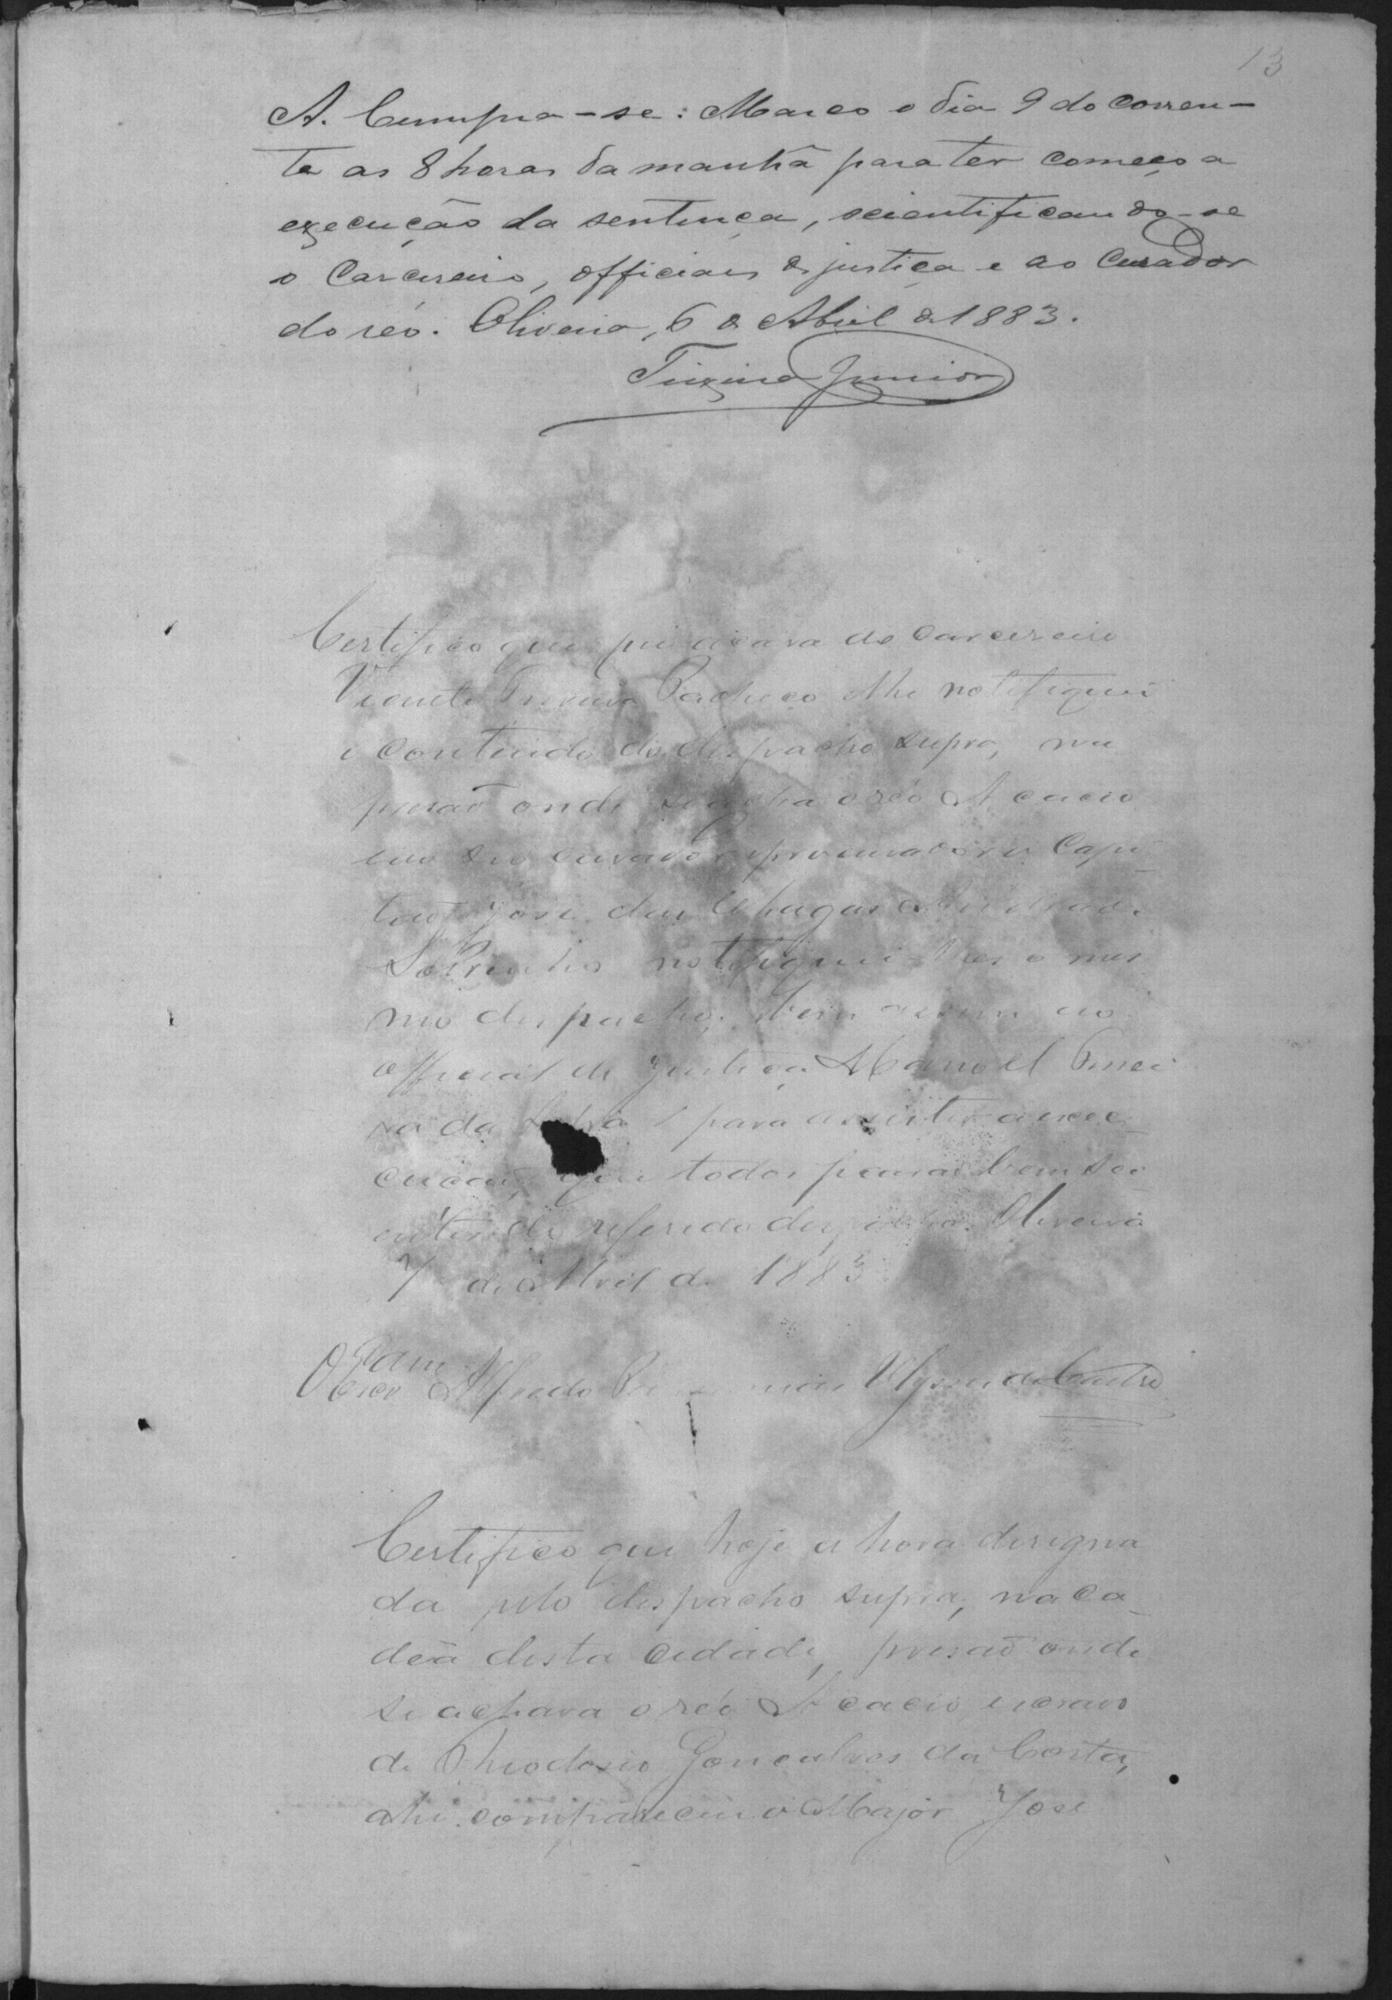 13
A. Cumpra-se: Marco o dia 9 do corren-
te as 8 horas da manhã para ter começo a
execução da sentença, scientificando-se
o Carcereiro, officiaes de justiça e ao Curador
do réo. Oliveira, 6 de Abril de 1883.
Teixeira Junior
Certifico que fui a do carcereiro
Vicente Pacheco ahi notifiquei
o conteudo do despacho supra, na
prisão onde se acha o réo Acacio
e ao seu curador e procurador o Capi-
tão José das Chagas Andrade
Sobrinho notifiquei-lhes o mes
mo despacho, bem assim ao
official de justiça Manoel
da para assistir a exe-
cução, que todos ficarão bem sci
entes do referido despacho. Oliveira
7 de Abril de 1883
O Escrm Alfredo Ulysses de Castro
Certifico que hoje a hora designa
da pelo despacho supra, na ca-
dêa desta cidade, prisão onde
se achava o réo Acacio, escravo
de Theodosio Gonçalves da Costa,
ahi compareceu o Major José